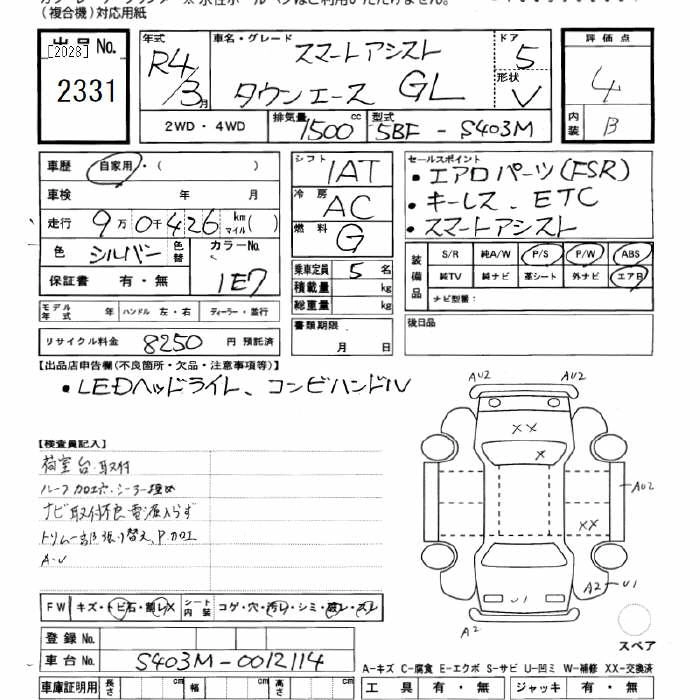 (複合機)対応用紙
出品No.
[2028]
2331
年式 車名・グレード ドア
R4 スマートアシスト 5
形状
/3月 タウンエース GL V
2WD・4WD 排気量 1500cc 型式 5BF-S403M
評価点
4
内装 B
車歴 自家用・( )
車検 年 月
走行 9万0千426 km マイル( )
色 シルバー 色替 カラーNo.
保証書 有・無 1E7
モデル年式 年 ハンドル 左・右 ディーラー・並行
リサイクル料金 8250 円 預託済
シフト IAT
冷房 AC
燃料 G
乗車定員 5 名
積載量 kg
総重量 kg
書類期限
月 日
セールスポイント
・エアロパーツ(FSR)
・キーレス、ETC
・スマートアシスト
装備品 S/R 純A/W P/S P/W ABS
純TV 純ナビ 革シート 外ナビ エアB
ナビ型番:
後日品
【出品店申告欄(不良箇所・欠品・注意事項等)】
・LEDヘッドライト、コンビハンドル
【検査員記入】
荷室台取付
ルーフ加工穴シーラー埋め
ナビ取付不良電源入らず
トリム一部張り替え、P加工
A-U
AU2 AU2
XX
X
AU2
XX
A2 U1
U1
A2
スペア
FW キズ・トビ石・割レX シート内装 コゲ・穴・汚レ・シミ・破レ・スレ
登録No.
車台No. S403M-0012114
車庫証明用 長さ cm 幅 cm 高さ cm
A-キズ C-腐食 E-エクボ S-サビ U-凹ミ W-補修 XX-交換済
工具 有・無 ジャッキ 有・無